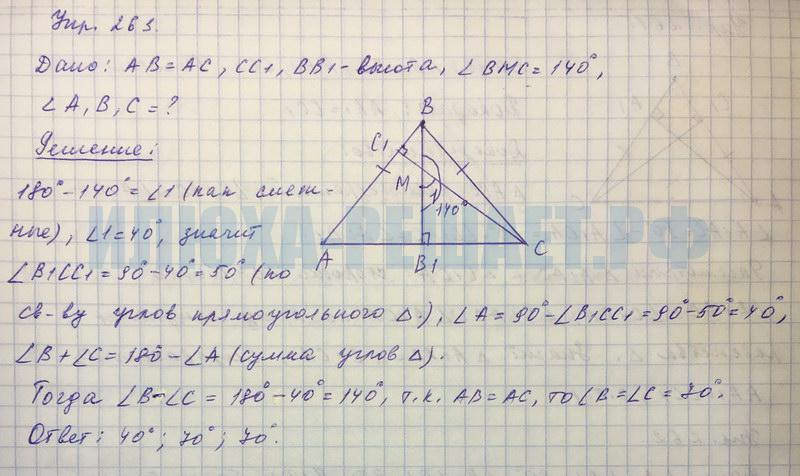 Упр. 263.
Дано: AB=AC, CC1, BB1-высота, ∠BMC=140°,
∠A, B, C=?
Решение:
180°-140°=∠1 (как смеж-
ные), ∠1=40°, значит
∠B1CC1=90°-40°=50° (по
св-ву углов прямоугольного △.), ∠A=90°-∠B1CC1=90°-50°=40°,
∠B+∠C=180-∠A (сумма углов △).
Тогда ∠B-∠C=180°-40°=140°, т.к. AB=AC, то ∠B=∠C=70°.
Ответ: 40°; 70°; 70°.
B
C1
M
1
140°
A
B1
C
ИЛЮХА-РЕШАЕТ.РФ